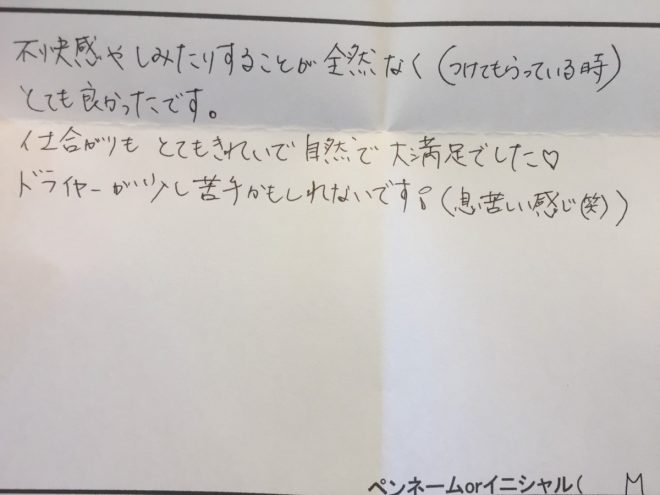 不快感やしみたりすることが全然なく(つけてもらっている時)
とても良かったです。
仕上がりもとてもきれいで自然で大満足でした♡
ドライヤーが少し苦手かもしれないです。(息苦しい感じ(笑))
ペンネームorイニシャル( M